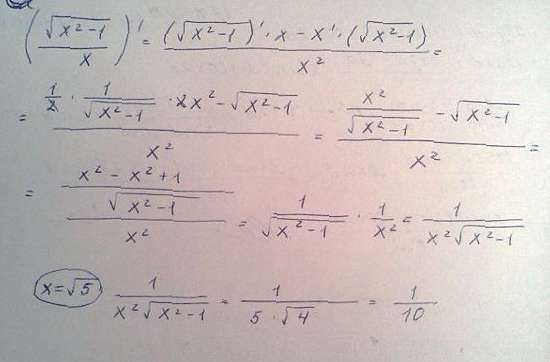 (√(x²-1) / x)' = ((√(x²-1))' · x - x' · (√(x²-1))) / x² =
= (1/2 · 1/√(x²-1) · 2x² - √(x²-1)) / x² = (x²/√(x²-1) - √(x²-1)) / x² =
= ((x² - x² + 1) / √(x²-1)) / x² = 1/√(x²-1) · 1/x² = 1/(x²√(x²-1))
x=√5 1/(x²√(x²-1)) = 1/(5·√4) = 1/10